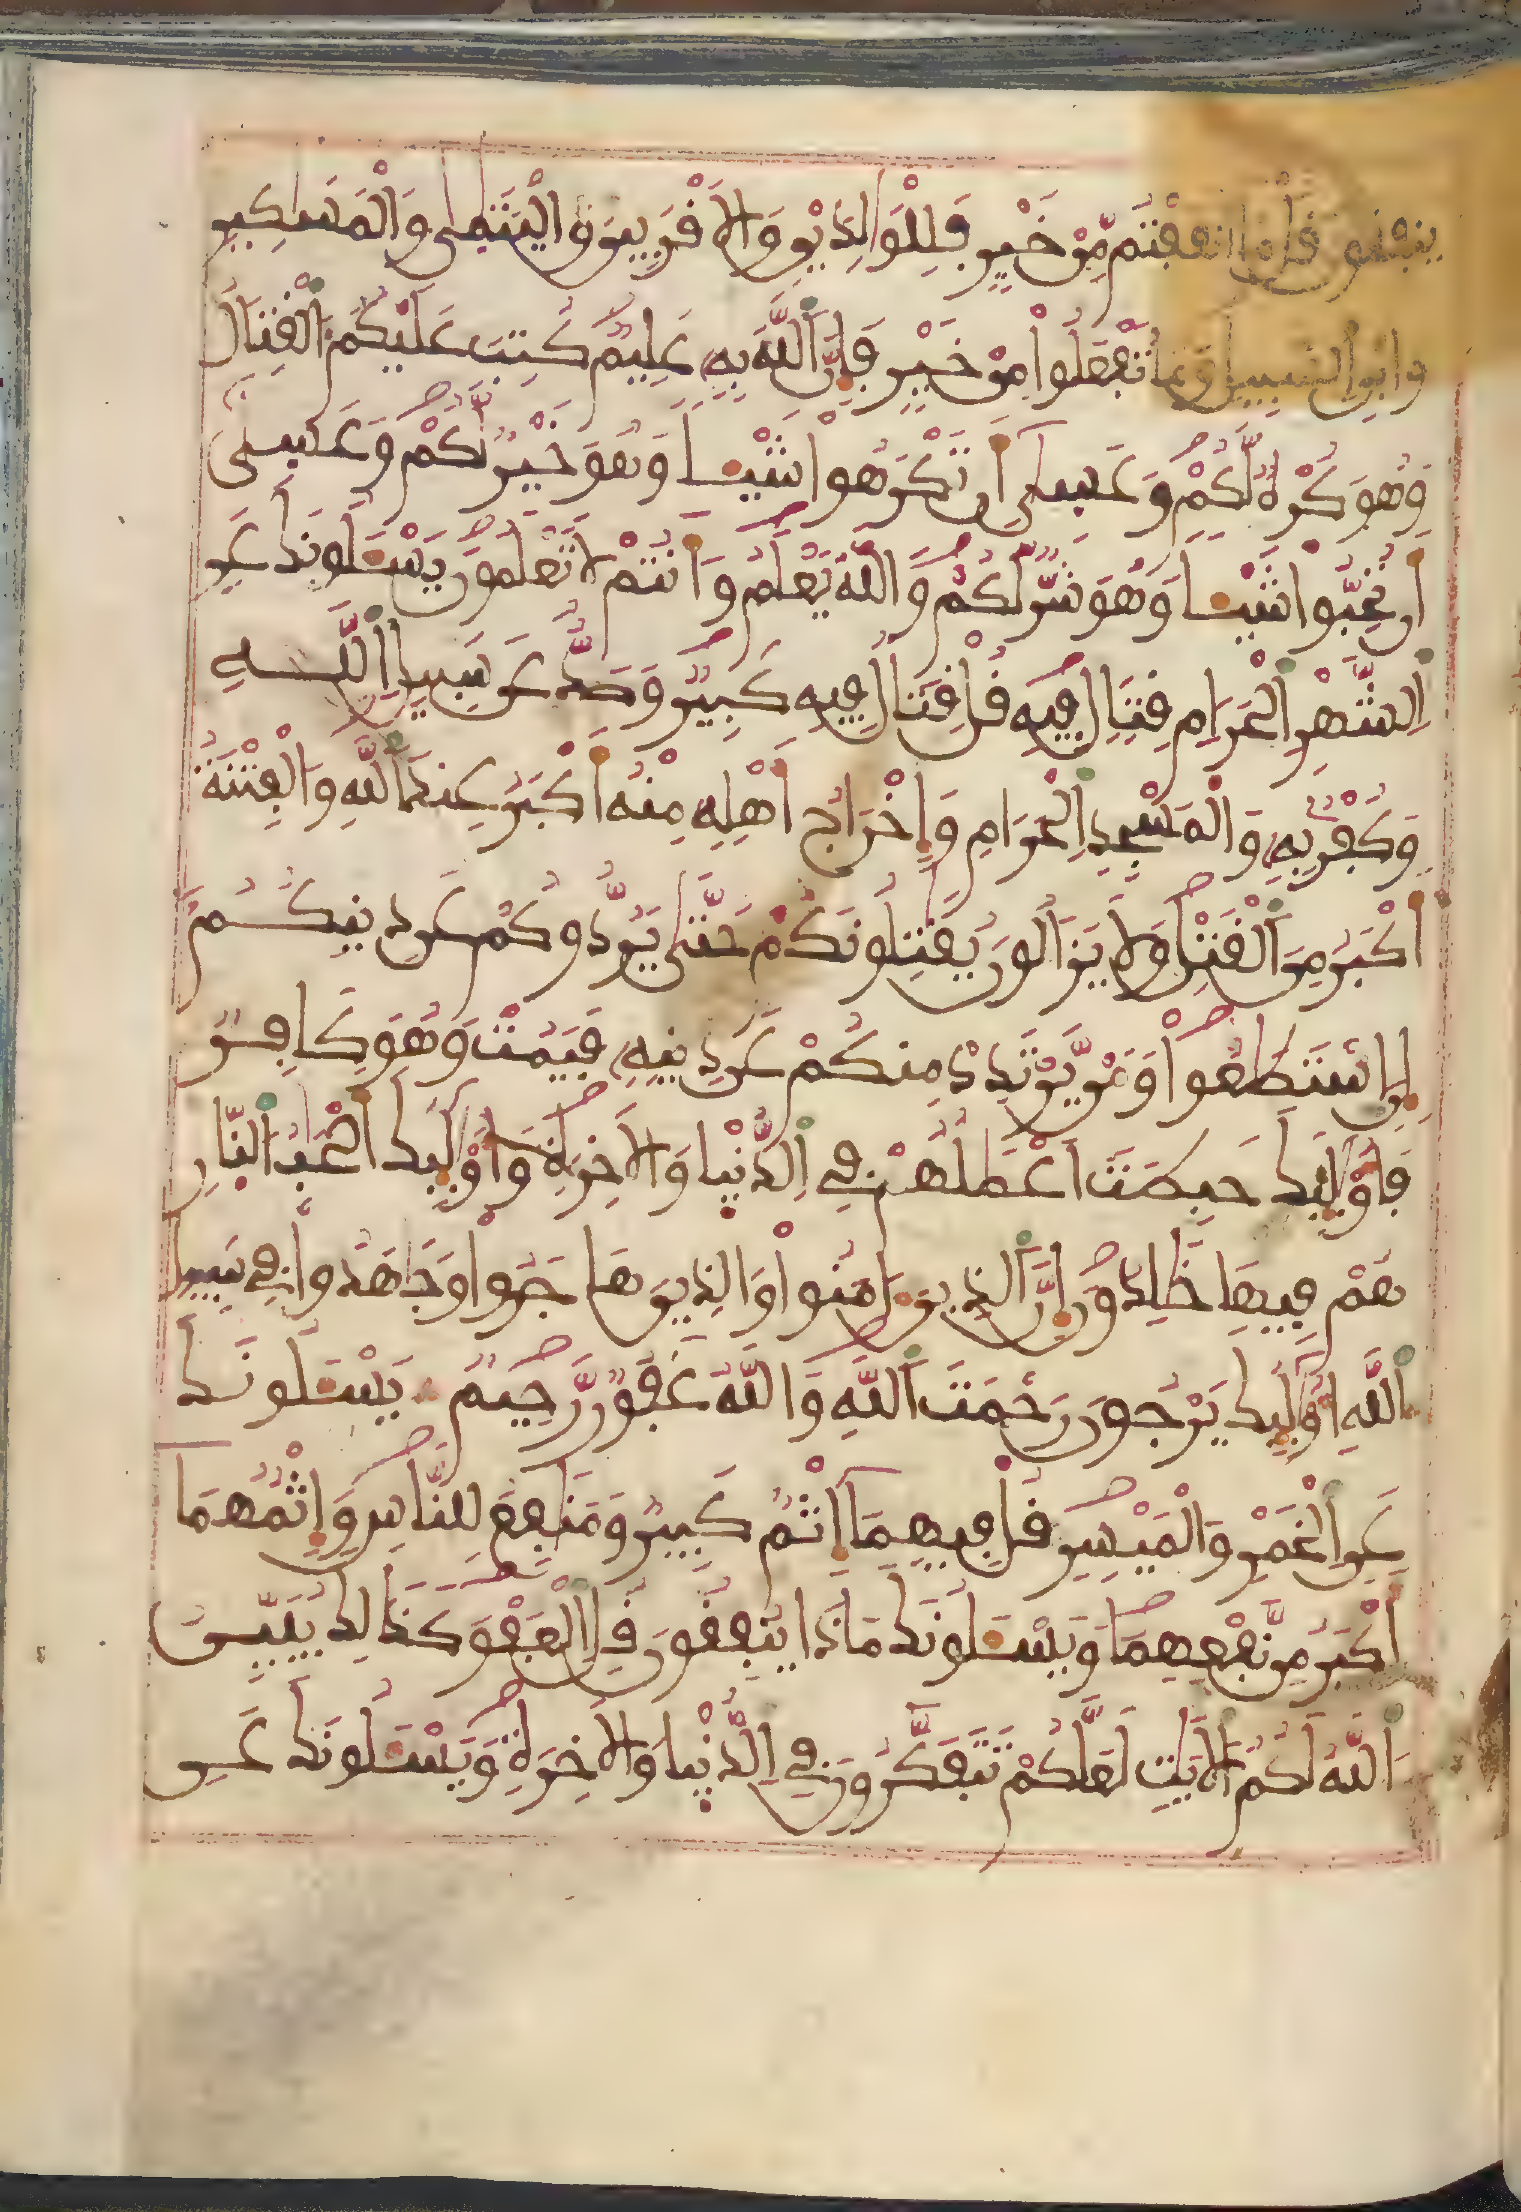 ينفقون قل ما أنفقتم مِّنْ خَيْرٍ فَلِلْوَٰلِدَيْنِ وَالَاقْرَبِينَ وَالْيَتَٰمَىٰ وَالْمَسَٰكِينِ
وابن السبيل وما تَفْعَلُوا مِنْ خَيْرٍ فَإِنَّ اَللَّهَ بِهِ عَلِيمٌ كُتِبَ عَلَيْكُمُ الْقِتَالُ
وَهُوَ كُرْهٌ لَّكُمْ وَعَسَىٰ أَن تَكْرَهُوا شَيْـًٔا وَهُوَ خَيْرٌ لَّكُمْ وَعَسَىٰ
أَن تُحِبُّوا شَيْـًٔا وَهُوَ شَرٌّ لَّكُمْ وَاللَّهُ يَعْلَمُ وَأَنتُمْ لَا تَعْلَمُونَ يَسْـَٔلُونَكَ عَنِ
اِلشَّهْرِ اِلْحَرَامِ قِتَالٍ فِيهِ قُلْ قِتَالٌ فِيهِ كَبِيرٌ وَصَدٌّ عَن سَبِيلِ اِللَّهِ
وَكُفْرٌ بِهِ وَالْمَسْجِدِ اِلْحَرَامِ وَإِخْرَاجُ أَهْلِهِ مِنْهُ أَكْبَرُ عِندَ اَللَّهِ وَالْفِتْنَةُ
أَكْبَرُ مِنَ اَلْقَتْلِ وَلَا يَزَالُونَ يُقَٰتِلُونَكُمْ حَتَّىٰ يَرُدُّوكُمْ عَن دِينِكُمُ
إِنِ اسْتَطَٰعُوا وَمَن يَّرْتَدِدْ مِنكُمْ عَن دِينِهِ فَيَمُتْ وَهُوَ كَافِرٌ
فَأُوْلَٰئِكَ حَبِطَتَ اَعْمَٰلُهُمْ فِي اِلدُّنْيَا وَالَاخِرَةِ وَأُوْلَٰئِكَ أَصْحَٰبُ اُلنَّارِ
هُمْ فِيهَا خَٰلِدُونَ إِنَّ اَلذِينَ ءَامَنُوا وَالذِينَ هَاجَرُوا وَجَٰهَدُوا فِي سَبِيلِ
اِللَّهِ أُوْلَٰئِكَ يَرْجُونَ رَحْمَتَ اَللَّهِ وَاللَّهُ غَفُورٌ رَّحِيمٌ يَسْـَٔلُونَكَ
عَنِ اِلْخَمْرِ وَالْمَيْسِرِ قُلْ فِيهِمَا إِثْمٌ كَبِيرٌ وَمَنَٰفِعُ لِلنَّاسِ وَإِثْمُهُمَا
أَكْبَرُ مِن نَّفْعِهِمَا وَيَسْـَٔلُونَكَ مَاذَا يُنفِقُونَ قُلِ الْعَفْوَ كَذَٰلِكَ يُبَيِّنُ
اُللَّهُ لَكُمُ الَايَٰتِ لَعَلَّكُمْ تَتَفَكَّرُونَ فِي اِلدُّنْيَا وَالَاخِرَةِ وَيَسْـَٔلُونَكَ عَنِ